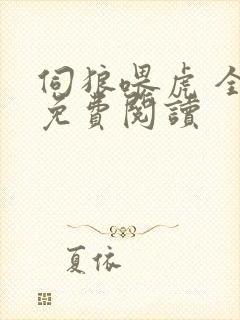 伺狼喂虎 全
免費閱讀
夏依